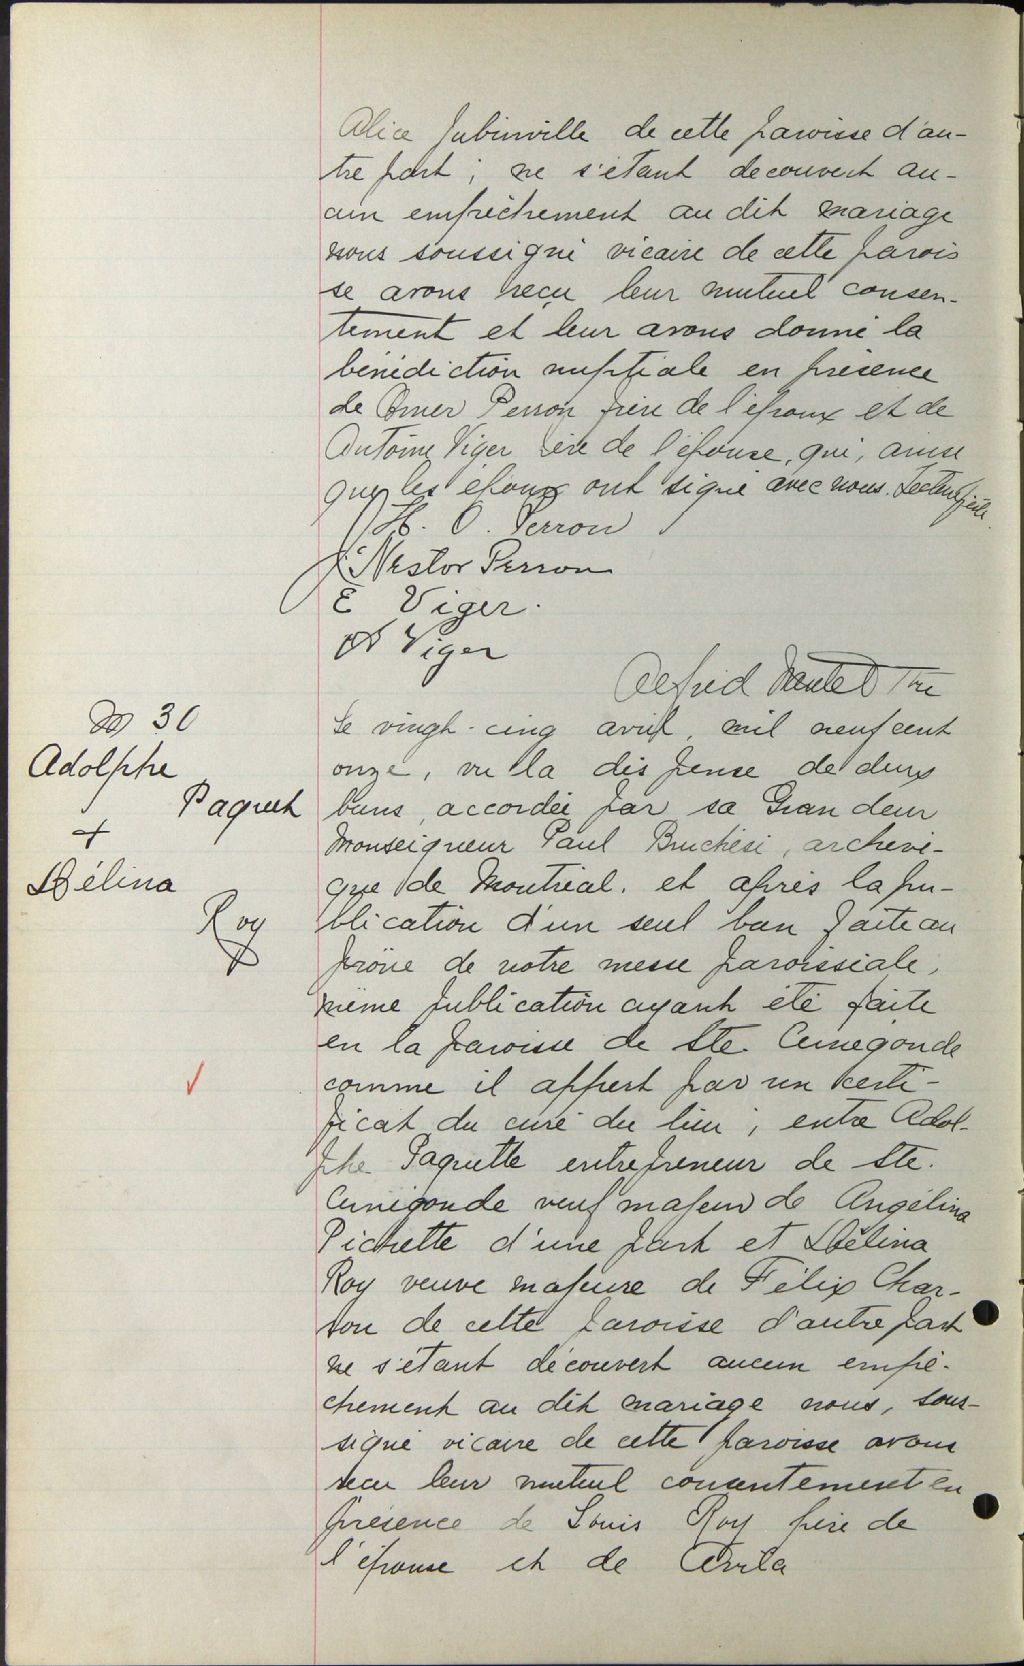 Alice Jubinville de cette paroisse d'au-
tre part; ne s'étant decouvert au-
cun empêchement au dit mariage
nous soussigné vicaire de cette parois
se avons reçu leur mutuel consen-
tement et leur avons donné la
bénédiction nuptiale en présence
de Omer Perron frère de l'époux et de
Antoine Viger père de l'épouse, qui, ainsi
que les époux ont signé avec nous. Lecture faite.
H. O. Perron
J. Nestor Perron
E Viger.
A Viger
Alfred Nantel Ptre
M 30
Adolphe
Paquet
+
Délina
Roy
Le vingt-cinq avril, mil neuf cent
onze, vu la dispense de deux
bans accordée par sa Grandeur
Monseigneur Paul Bruchési, archevê-
que de Montréal, et après la pu-
blication d'un seul ban faite au
prône de notre messe paroissiale,
même publication ayant été faite
en la paroisse de Ste Cunégonde
comme il appert par un certi-
ficat du curé du lieu; entre Adol-
phe Paquette entrepreneur de Ste.
Cunégonde veuf majeur de Angélina
Pichette d'une part et Délina
Roy veuve majeure de Félix Char-
ron de cette paroisse d'autre part
ne s'étant découvert aucun empê-
chement au dit mariage nous, sous-
signé vicaire de cette paroisse avons
reçu leur mutuel consentement en
présence de Louis Roy père de
l'épouse et de Avila